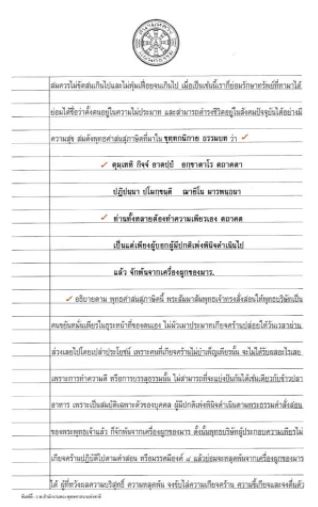 สมควรไม่ขัดสนเกินไปและไม่ฟุ่มเฟือยจนเกินไป เมื่อเป็นเช่นนี้เราก็ย่อมรักษาทรัพย์ที่หามาได้
ย่อมได้ชื่อว่าตั้งตนอยู่ในความไม่ประมาท และสามารถดำรงชีวิตอยู่ในสังคมปัจจุบันได้อย่างมี
ความสุข สมดังพุทธศาสนสุภาษิตที่มาใน ขุททกนิกาย ธรรมบท ว่า
ตุมฺเหหิ กิจฺจํ อาตปฺปํ อกฺขาตาโร ตถาคตา
ปฏิปนฺนา ปโมกฺขนฺติ ฌายิโน มารพนฺธนา
ท่านทั้งหลายต้องทำความเพียรเอง ตถาคต
เป็นแต่เพียงผู้บอก ผู้มีปกติเพ่งพินิจดำเนินไป
แล้ว จักพ้นจากเครื่องผูกของมาร.
อธิบายตาม พุทธศาสนสุภาษิตนี้ พระสัมมาสัมพุทธเจ้าทรงสั่งสอนให้พุทธบริษัทเป็น
คนขยันหมั่นเพียรในธุระหน้าที่ของตนเอง ไม่มัวเมาประมาทเกียจคร้านปล่อยให้วันเวลาผ่าน
ล่วงเลยไปโดยเปล่าประโยชน์ เพราะคนที่เกียจคร้านไม่บำเพ็ญเพียรนั้น จะไม่ได้รับผลอะไรเลย
เพราะการทำความดี หรือการบรรลุธรรมนั้น ไม่สามารถที่จะแบ่งปันกันได้เช่นเดียวกับข้าวปลา
อาหาร เพราะเป็นสมบัติเฉพาะตัวของบุคคล ผู้มีปกติเพ่งพินิจดำเนินตามพระธรรมคำสั่งสอน
ของพระพุทธเจ้าแล้ว ก็จักพ้นจากเครื่องผูกของมาร ดังนั้นพุทธบริษัทผู้ประกอบความเพียรไม่
เกียจคร้านปฏิบัติไปตามคำสอน หรือมรรคมีองค์ ๘ แล้วย่อมจะหลุดพ้นจากเครื่องผูกของมาร
ได้ ผู้ที่หวังผลความบริสุทธิ์ ความหลุดพ้น จงขับไล่ความเกียจคร้าน ความขี้เกียจและจงตื่นตัว